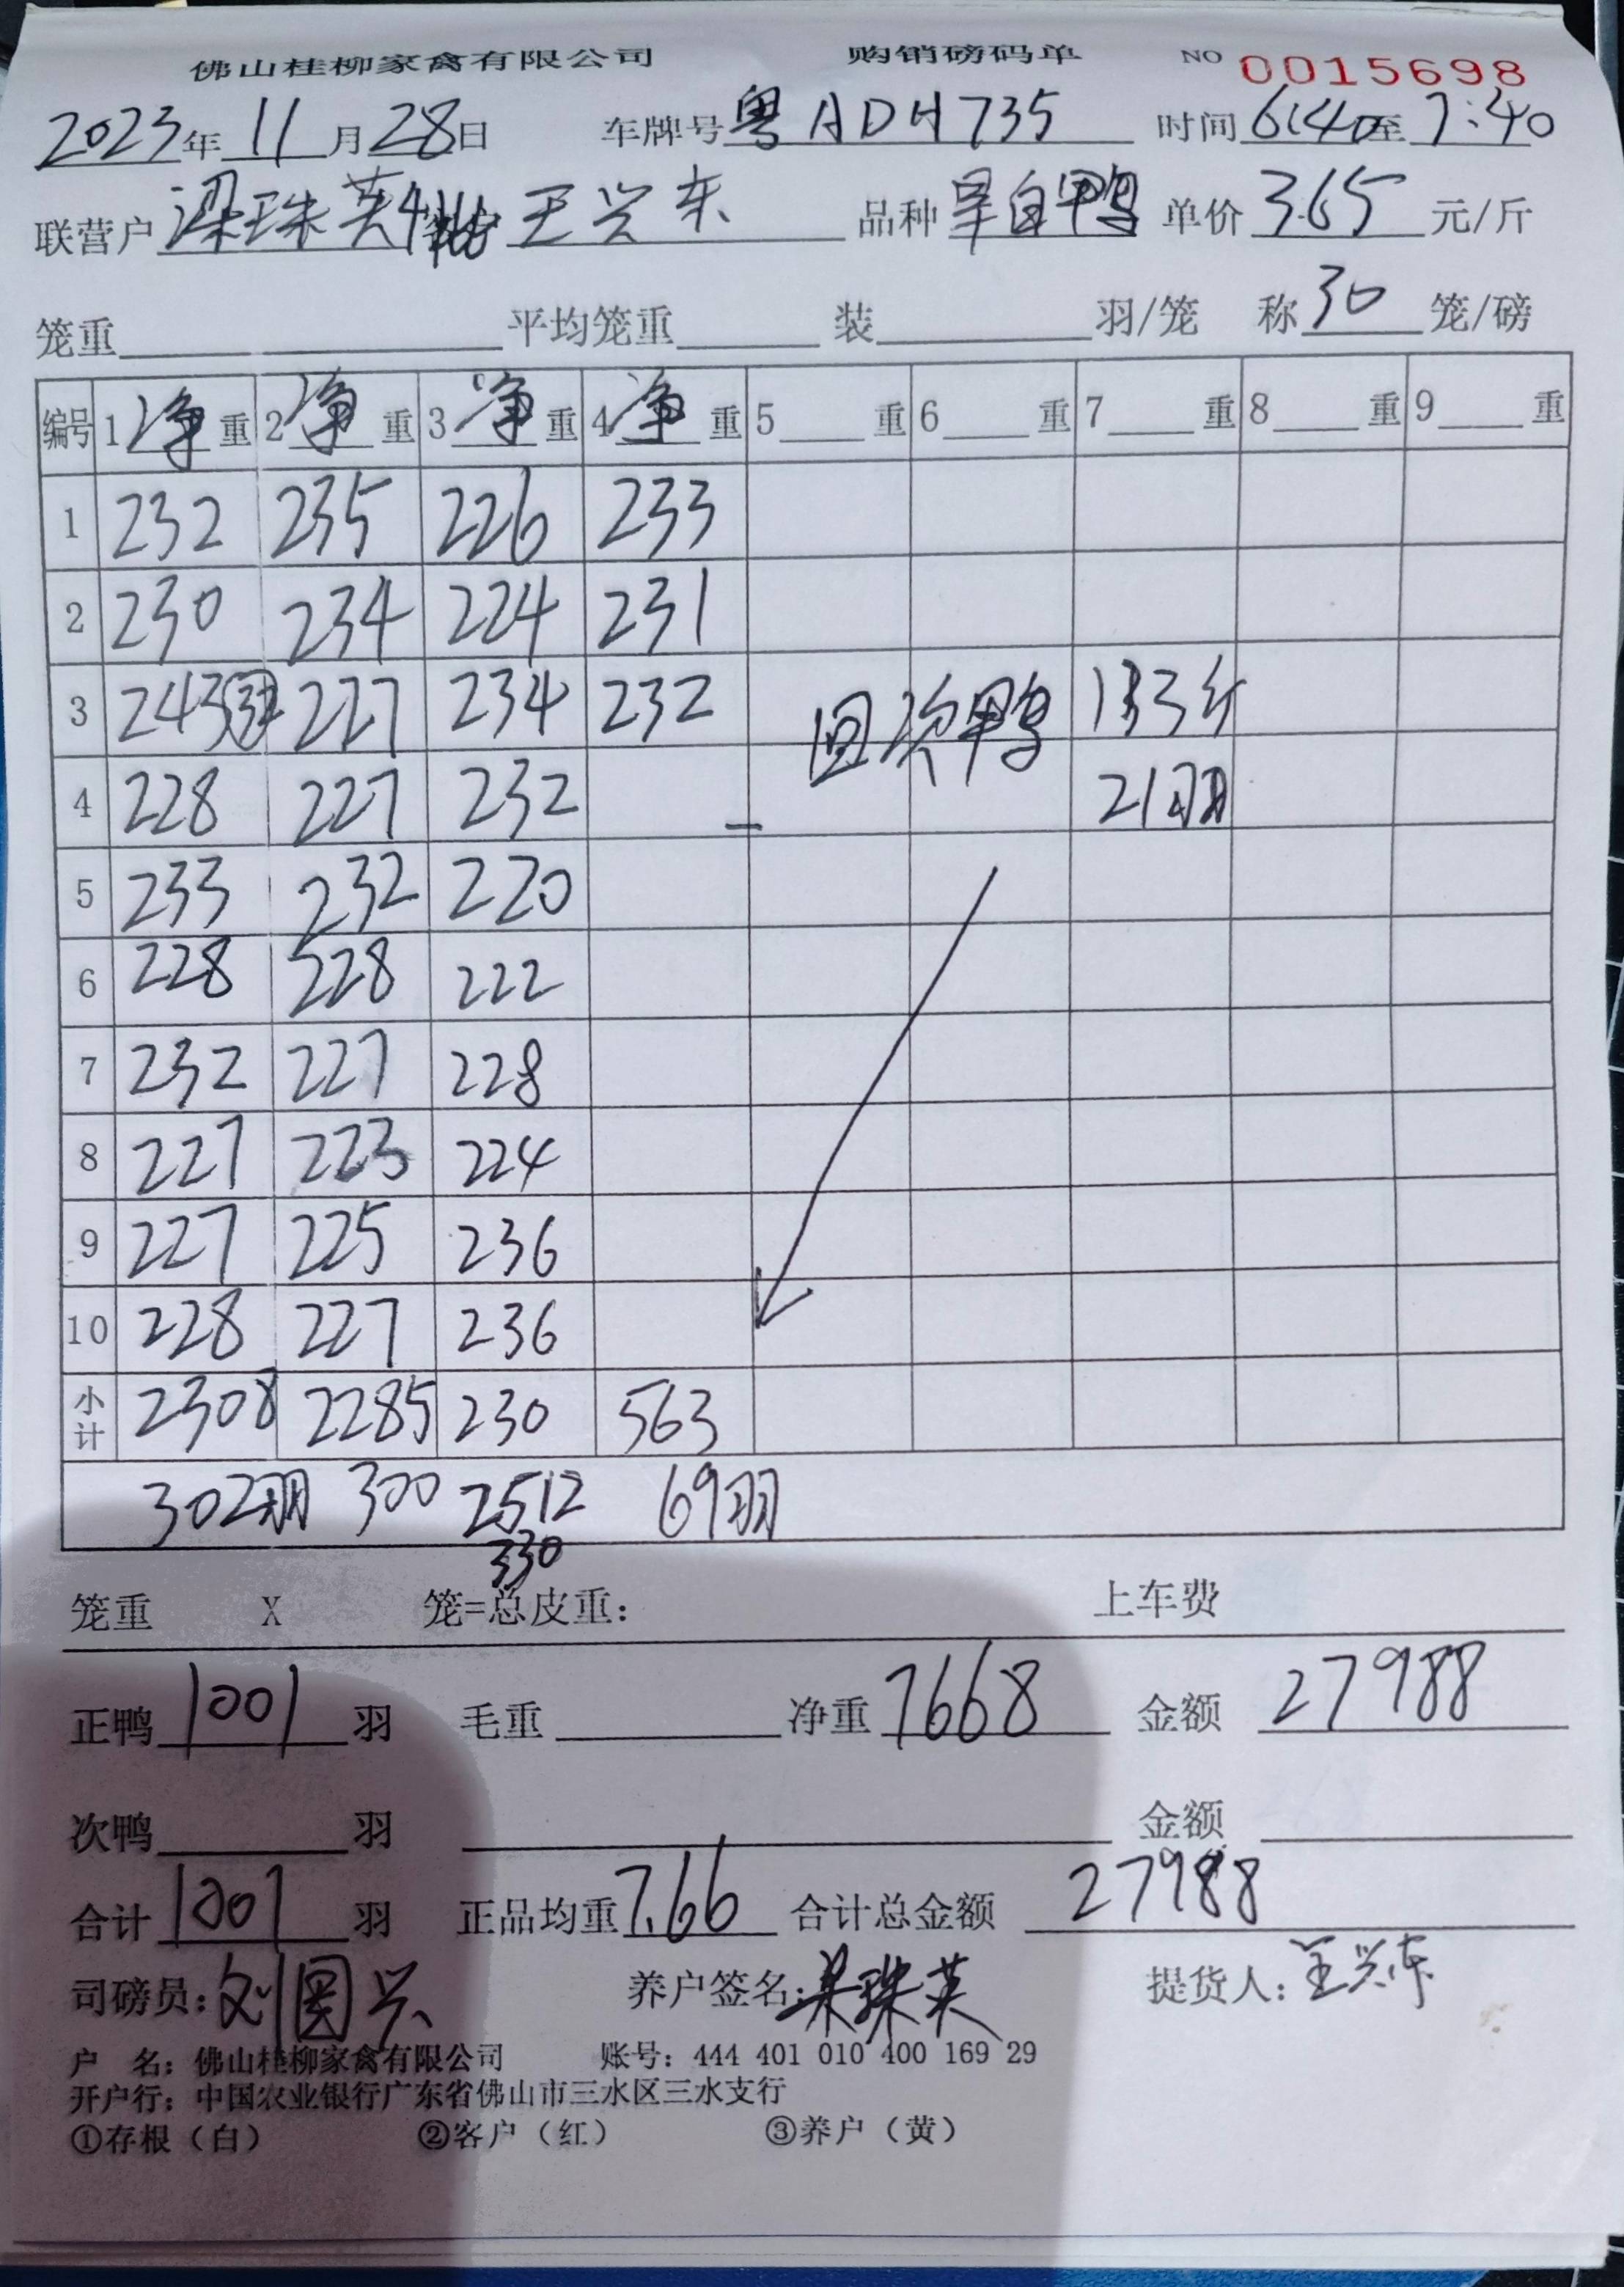 佛山桂柳家禽有限公司 购销磅码单 NO 0015698
2023年11月28日 车牌号粤ADH735 时间6:40至7:40
联营户梁珠英4批 王兴东 品种旱白鸭 单价3.65元/斤
笼重 平均笼重 装 羽/笼 称30笼/磅
编号 1净重 2净重 3净重 4净重 5重 6重 7重 8重 9重
1 232 235 226 233
2 230 234 224 231
3 243 32 227 234 232 回次鸭 133斤
4 228 227 232 21羽
5 233 232 220
6 228 228 222
7 232 227 228
8 227 223 224
9 227 225 236
10 228 227 236
小计 2308 2285 230 563
302羽 300 2512 69羽
330
笼重 X 笼=总皮重: 上车费
正鸭1001羽 毛重 净重7668 金额27988
次鸭 羽 金额
合计1001羽 正品均重7.66 合计总金额27988
司磅员:刘国兴 养户签名:梁珠英 提货人:王兴东
户 名: 佛山桂柳家禽有限公司 账号: 444 401 010 400 169 29
开户行: 中国农业银行广东省佛山市三水区三水支行
①存根（白） ②客户（红） ③养户（黄）